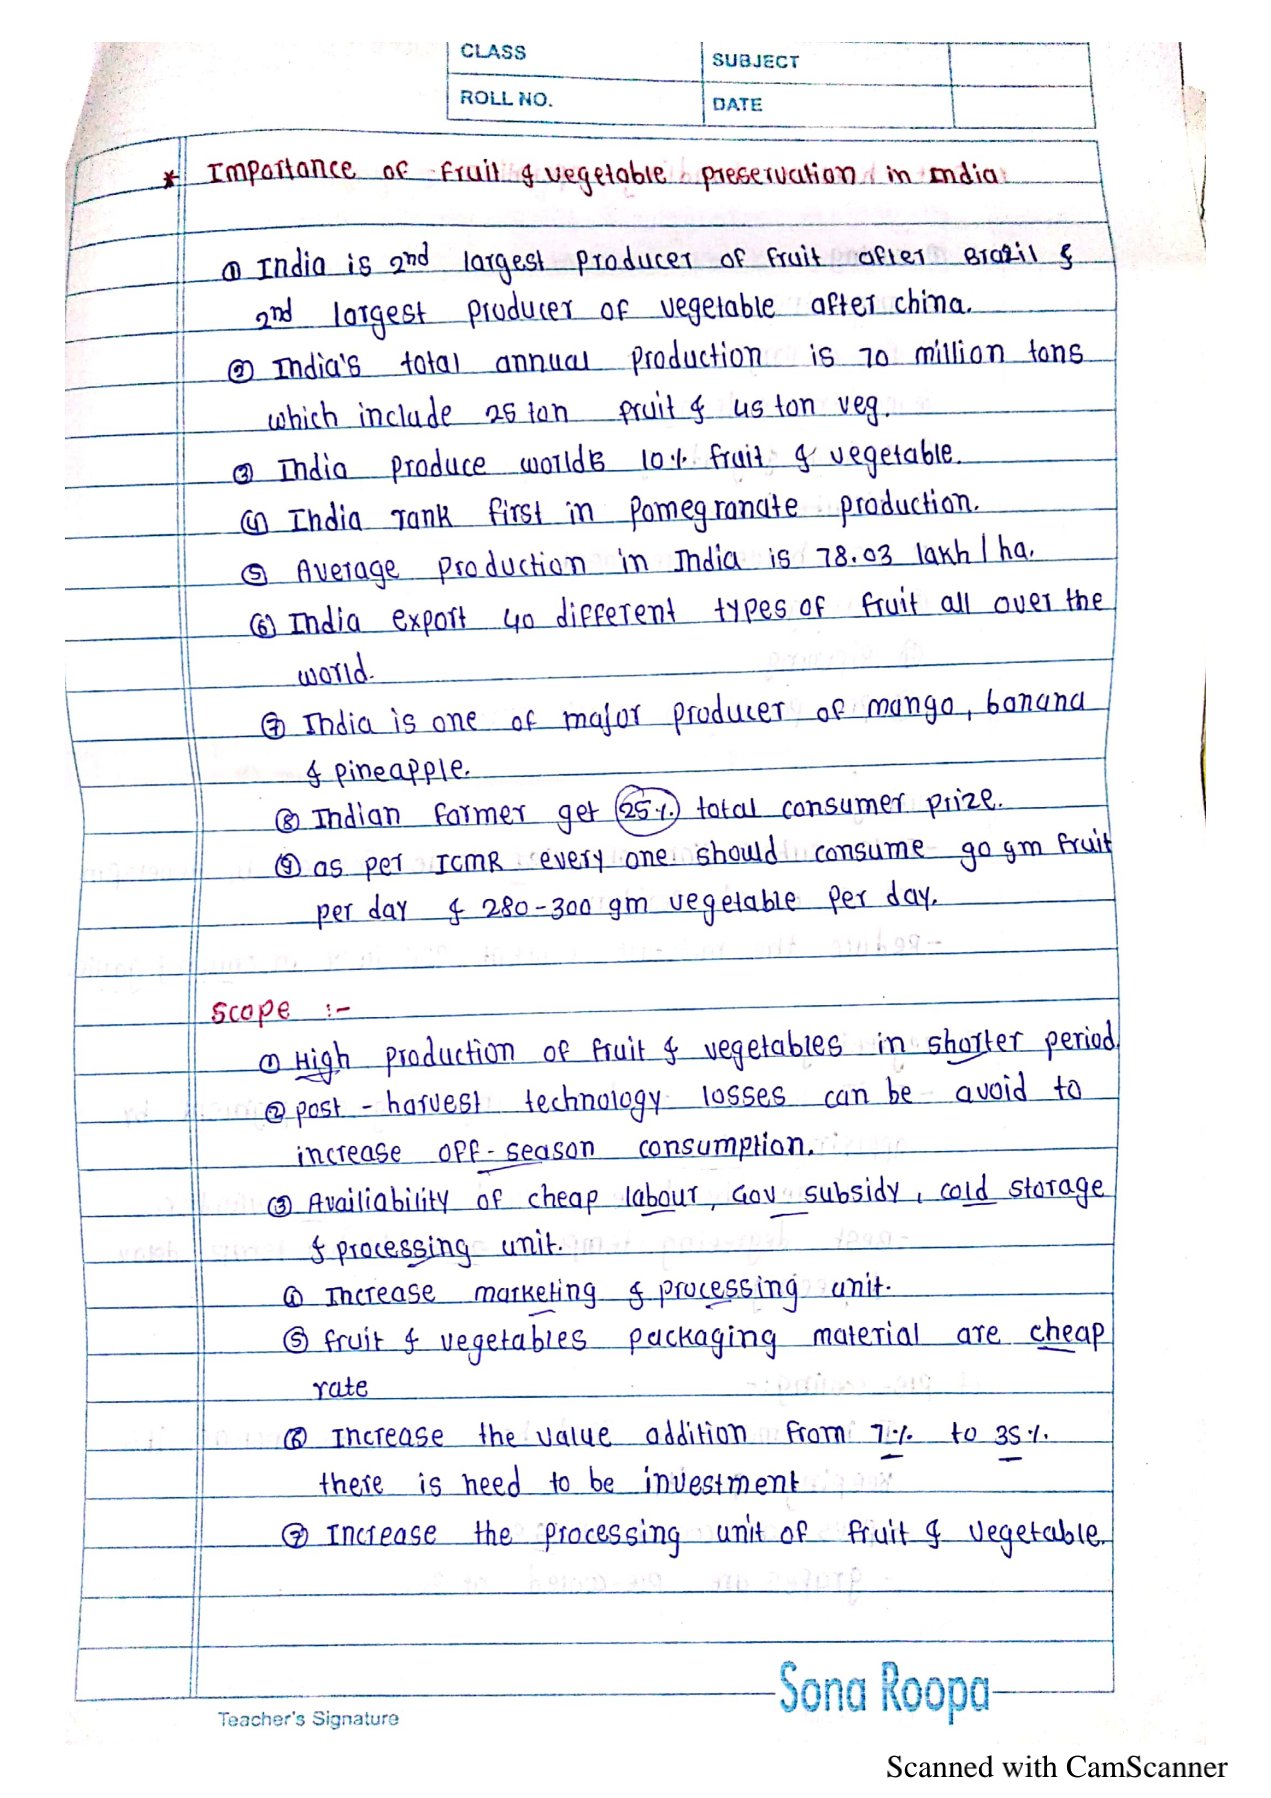 CLASS
SUBJECT
ROLL NO.
DATE
* Importance of fruit & vegetable preservation in India
① India is 2nd largest producer of fruit after Brazil &
2nd largest producer of vegetable after china.
② India's total annual production is 70 million tons
which include 25 ton fruit & 45 ton veg.
③ India produce world's 10% fruit & vegetable.
④ India rank first in Pomegranate production.
⑤ Average production in India is 78.03 lakh/ha.
⑥ India export 40 different types of fruit all over the
world.
⑦ India is one of major producer of mango, banana
& pineapple.
⑧ Indian farmer get 25% total consumer prize.
⑨ as per ICMR every one should consume 90 gm fruit
per day & 280-300 gm vegetable per day.
Scope :-
① High production of fruit & vegetables in shorter period.
② post - harvest technology losses can be avoid to
increase off-season consumption.
③ Availiability of cheap labour, Gov subsidy, cold storage
& processing unit.
④ Increase marketing & processing unit.
⑤ fruit & vegetables packaging material are cheap
rate
⑥ Increase the value addition from 7% to 35%.
there is need to be investment
⑦ Increase the processing unit of fruit & vegetable.
Sona Roopa
Teacher's Signature
Scanned with CamScanner